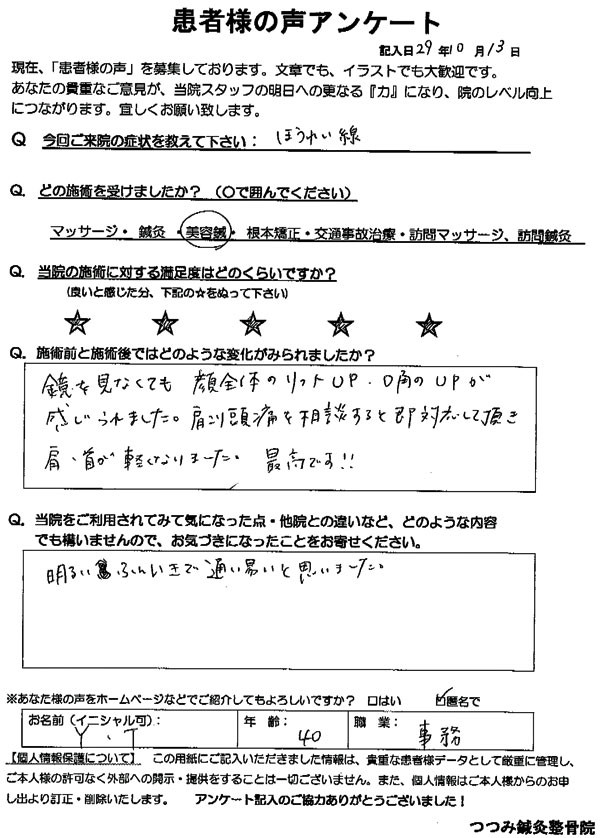 患者様の声アンケート
記入日29年10月13日
現在、「患者様の声」を募集しております。文章でも、イラストでも大歓迎です。
あなたの貴重なご意見が、当院スタッフの明日への更なる『力』になり、院のレベル向上
につながります。宜しくお願い致します。
Q 今回ご来院の症状を教えて下さい： ほうれい線
Q. どの施術を受けましたか？（○で囲んでください）
マッサージ・ 鍼灸 ・美容鍼・ 根本矯正・交通事故治療・訪問マッサージ、訪問鍼灸
Q. 当院の施術に対する満足度はどのくらいですか？
（良いと感じた分、下記の☆をぬって下さい）
☆ ☆ ☆ ☆ ☆
Q. 施術前と施術後ではどのような変化がみられましたか？
鏡を見なくても 顔全体のリフトUP、口角のUPが
感じられました。肩こり頭痛を相談すると即対応して頂き
肩、首が軽くなりました。 最高です!!
Q. 当院をご利用されてみて気になった点・他院との違いなど、どのような内容
でも構いませんので、お気づきになったことをお寄せください。
明るい ふんいきで通い易いと思いました。
※あなた様の声をホームページなどでご紹介してもよろしいですか？ □はい ☑匿名で
お名前（イニシャル可）： Y・T 年 齢： 40 職 業： 事務
【個人情報保護について】 この用紙にご記入いただきました情報は、貴重な患者様データとして厳重に管理し、
ご本人様の許可なく外部への開示・提供をすることは一切ございません。また、個人情報はご本人様からのお申
し出より訂正・削除いたします。 アンケート記入のご協力ありがとうございました！
つつみ鍼灸整骨院